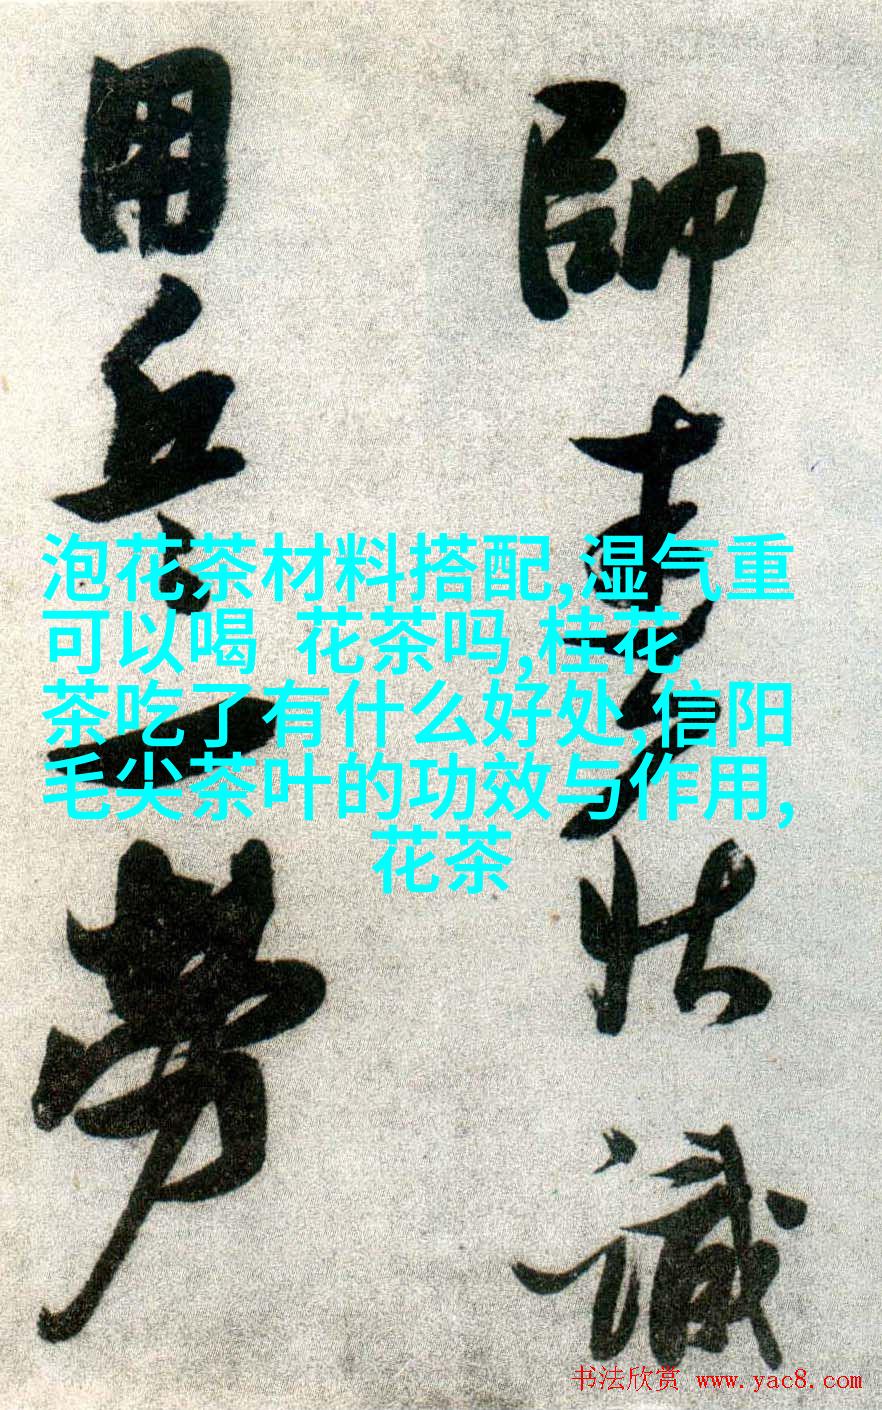 帥素壯識
用兵一勞
泡花茶材料搭配,湿气重
可以喝 花茶吗,桂花
茶吃了有什么好处,信阳
毛尖茶叶的功效与作用,
花茶
书法欣赏 www.yac8.com